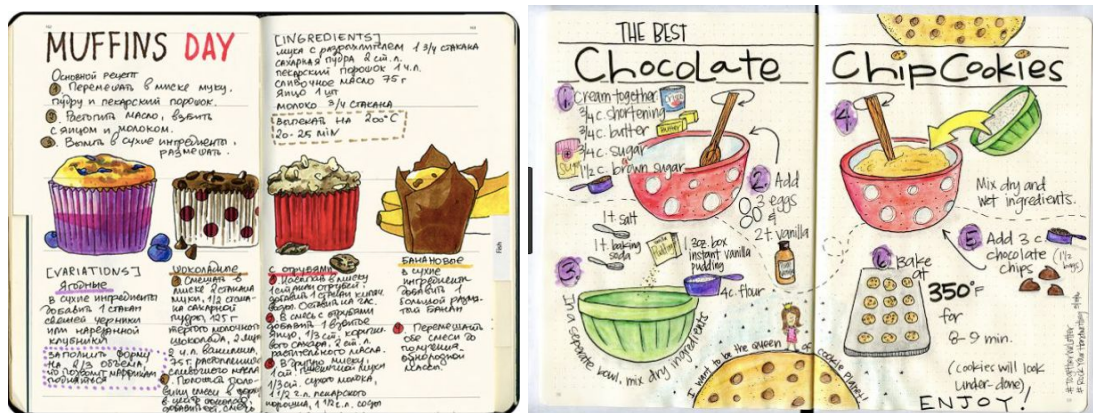 MUFFINS DAY
Основной рецепт
1 Перемешать в миске муку,
пудру и пекарский порошок.
2 Растопить масло, взбить
с яйцом и молоком.
3 Вылить в сухие ингредиенты,
размешать.
[INGREDIENTS]
мука с разрыхлителем 1 3/4 стакана
сахарная пудра 2 ст. л.
пекарский порошок 1 ч.л.
сливочное масло 75 г
яйцо 1 шт
молоко 3/4 стакана
Выпекать на 200°C
20-25 min
[VARIATIONS]
Ягодные
в сухие ингредиенты
добавить 1 стакан
свежей черники
или нарезанной
клубники
Заполнить форму
на 2/3 объема,
Шоколадные
миске 2 стакана
муки, 1/2 стака-
на сахарной
пудры 125 г
тертого молочного
шоколада, 2
2 ч.л. ванилина,
75 г растопленного
сливочного масла
с отрубями
1 стакан отрубей,
добавить 1 стакан кипяч.
воды. Оставить на час.
2 В смесь с отрубями
добавить 1 взбитое
яйцо, 1/3 ст. коричн-
вого сахара, 2 ст.л.
растительного масла.
1/3 ст. сухого молока,
1 1/2 ч.л. пекарского
порошка, 1 1/2 ч.л. соды
Банановые
в сухие
ингредиенты
добавить 1
большой
банан
4 Перемешать
обе смеси до
получения
однородной
массы
Fish
THE BEST
Chocolate
1. Cream together:
3/4 c. shortening
3/4 c. butter
3/4 c. sugar
1 1/2 c. brown sugar
Crisco
butter
2. Add
3 eggs
&
2 t. vanilla
1 t. salt
1 t. baking
soda
1 3oz. box
instant vanilla
pudding
pudding
4 c. flour
3. In a separate bowl, mix dry ingredients
I want to be the queen of cookie planet!
Chip Cookies
4.
Mix dry and
wet ingredients.
5. Add 3 c.
chocolate
chips
(1 1/2 bags)
6. Bake
at
350°F
for
8-9 min.
(cookies will look
under-done)
ENJOY!